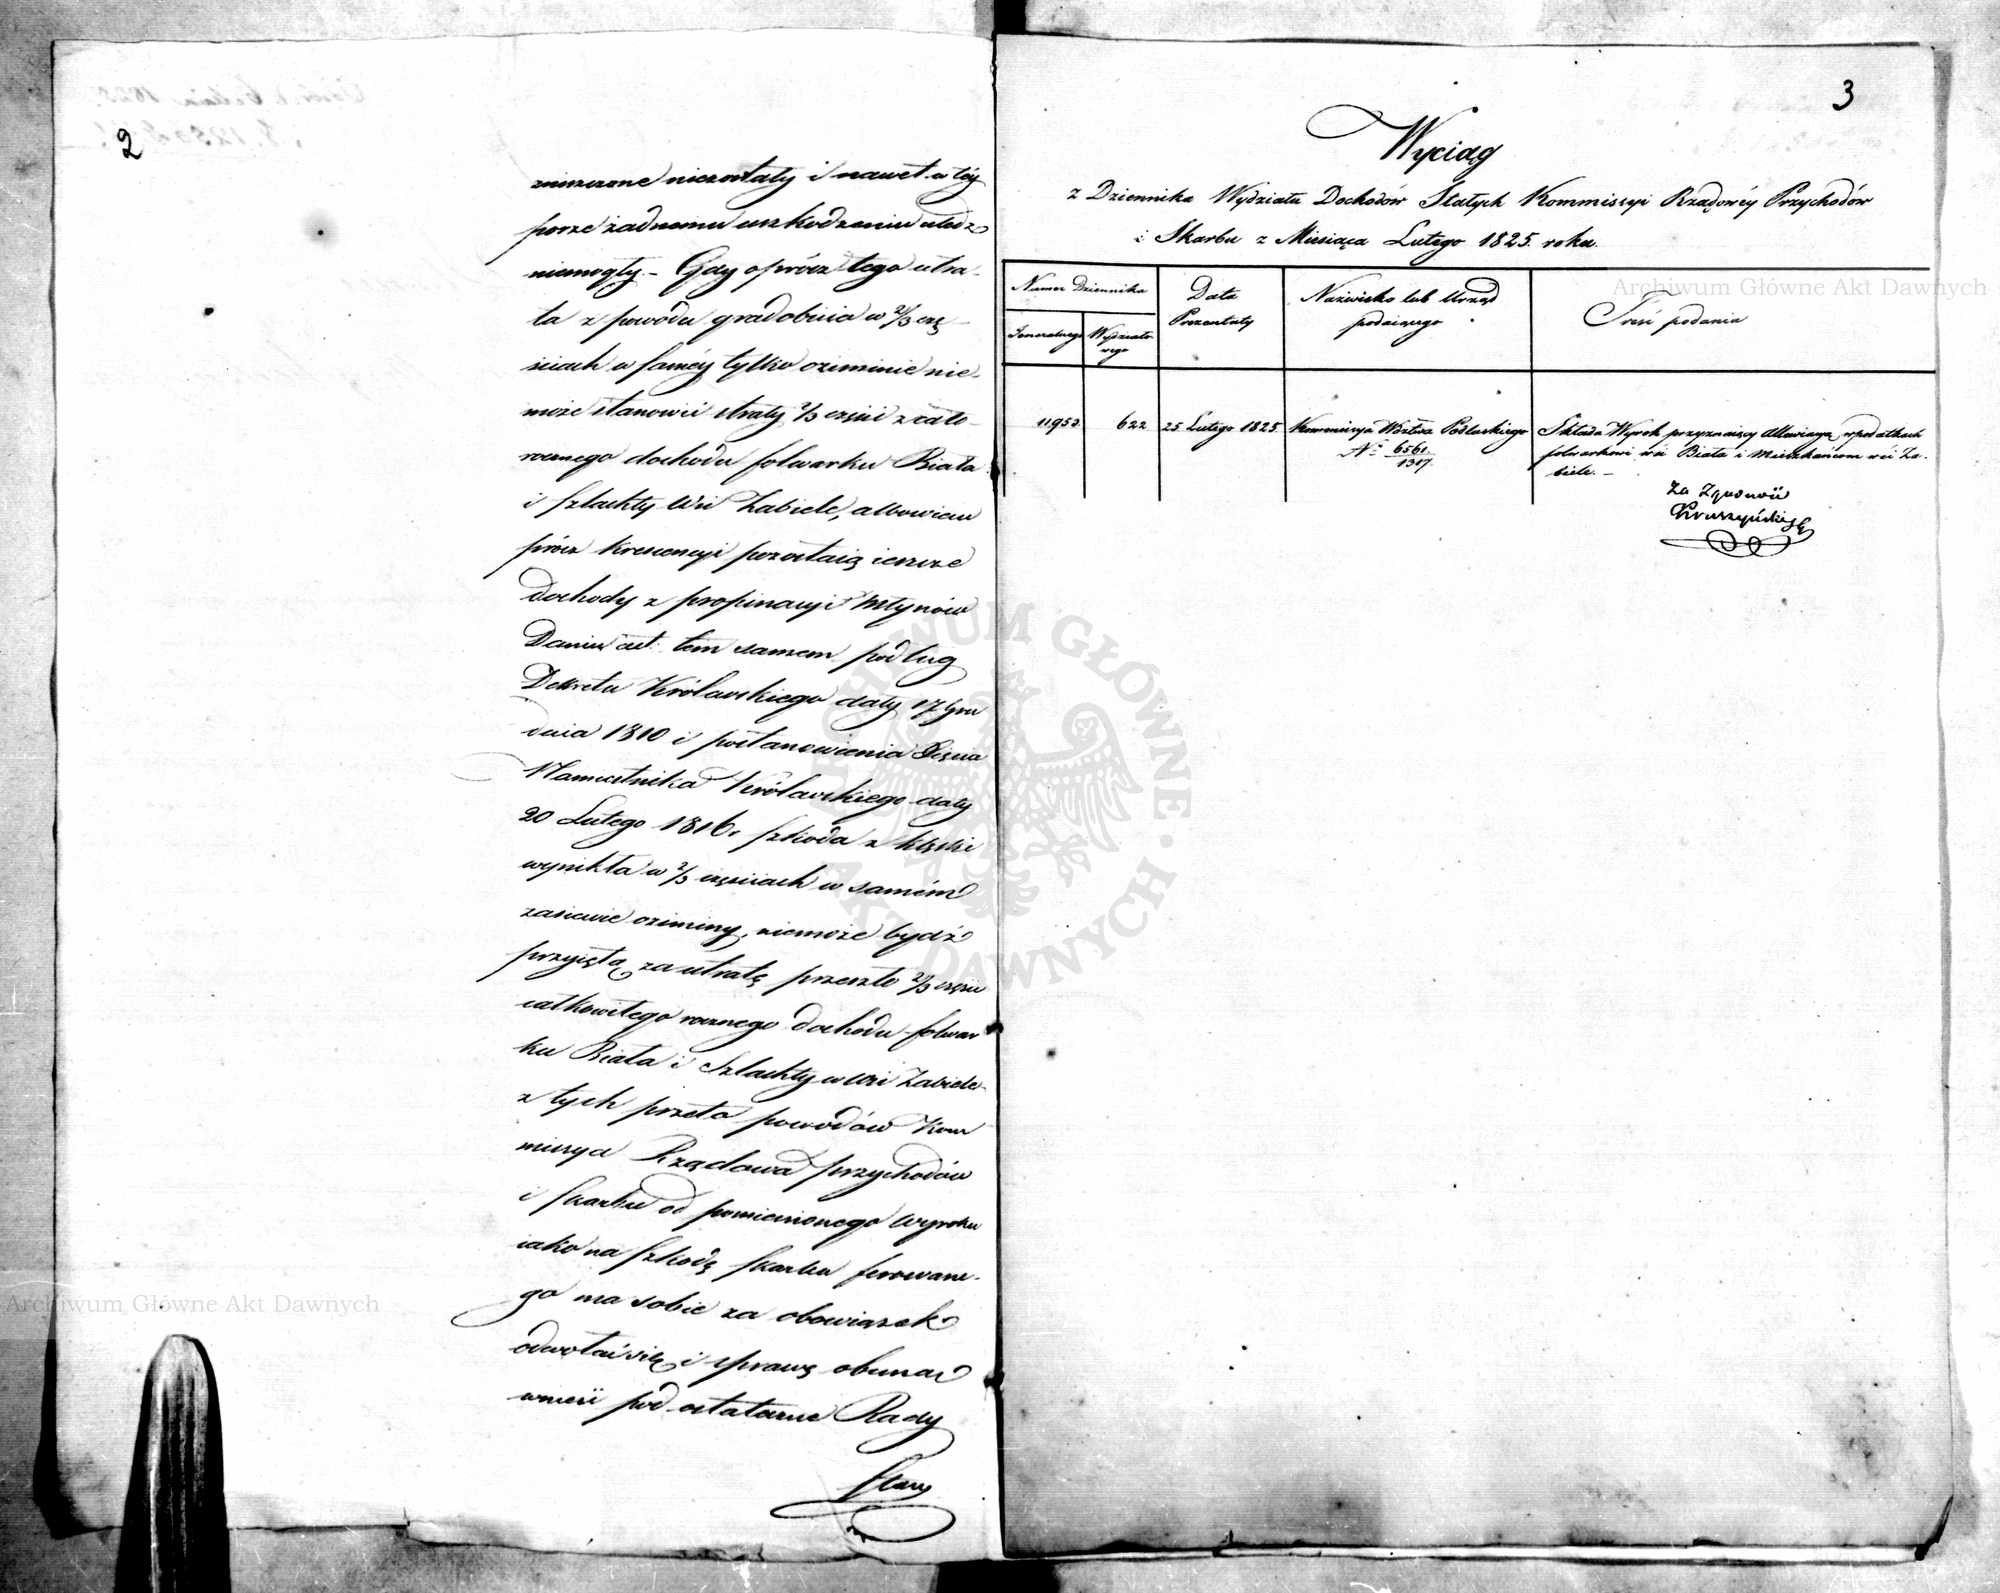 2
zniszczone niezostały i nawet w téy
porze żadnemu uszkodzeniu uledz
niemogły. – Gdy oprócz tego utra-
ta z powodu gradobicia w 2/3 czę-
ściach w saméy tylko oziminie nie-
może stanowić straty 2/3 części z cało-
rocznego dochodu folwarku Biała
i Szlachty Wsi Zabiele, albowiem
prócz krescencyi pozostaią ieszcze
dochody z propinacyi Młynów
Danin ect. tem samem podług
Dekretu Królewskiego daty 17 Gru
dnia 1810 i postanowienia Xięcia
Namiestnika Królewskiego daty
20 Lutego 1816. szkoda z klęski
wynikła w 2/3 częściach w samém
zasiewie oziminy, niemoże bydź
przyiętą za utratę przeszło 2/3 części
całkowitego rocznego dochodu folwar
ku Biała i Szlachty w Wsi Zabiele
z tych przeto powodów Kom
missya Rządowa przychodów
i skarbu od pomienionego Wyroku
iako na szkodę skarbu ferowane-
go ma sobie za obowiązek
odwołać się i sprawę obecną
wnieść pod ostateczne Rady
Stanu
3
Wyciąg
z Dziennika Wydziału Dochodów Stałych Kommissyi Rządowéy Przychodów
i Skarbu z Miesiąca Lutego 1825. roku.
Numer Dziennika
Generalnego
Wydziało-
wego
Data
Prezentaty
Nazwisko lub Urząd
podaiącego
Treść podania
11953.
622
25 Lutego 1825.
Kommissya Wdztwa Podlaskiego
No 6561./1317.
Składa Wyrok przyznaiący allewiacyą w podatkach
folwarkowi wsi Biała i Mieszkańcom wsi Za-
biele. –
Za Zgodność
Kruszyński
Archiwum Główne Akt Dawnych
Archiwum Główne Akt Dawnych
ARCHIWUM GŁÓWNE AKT DAWNYCH